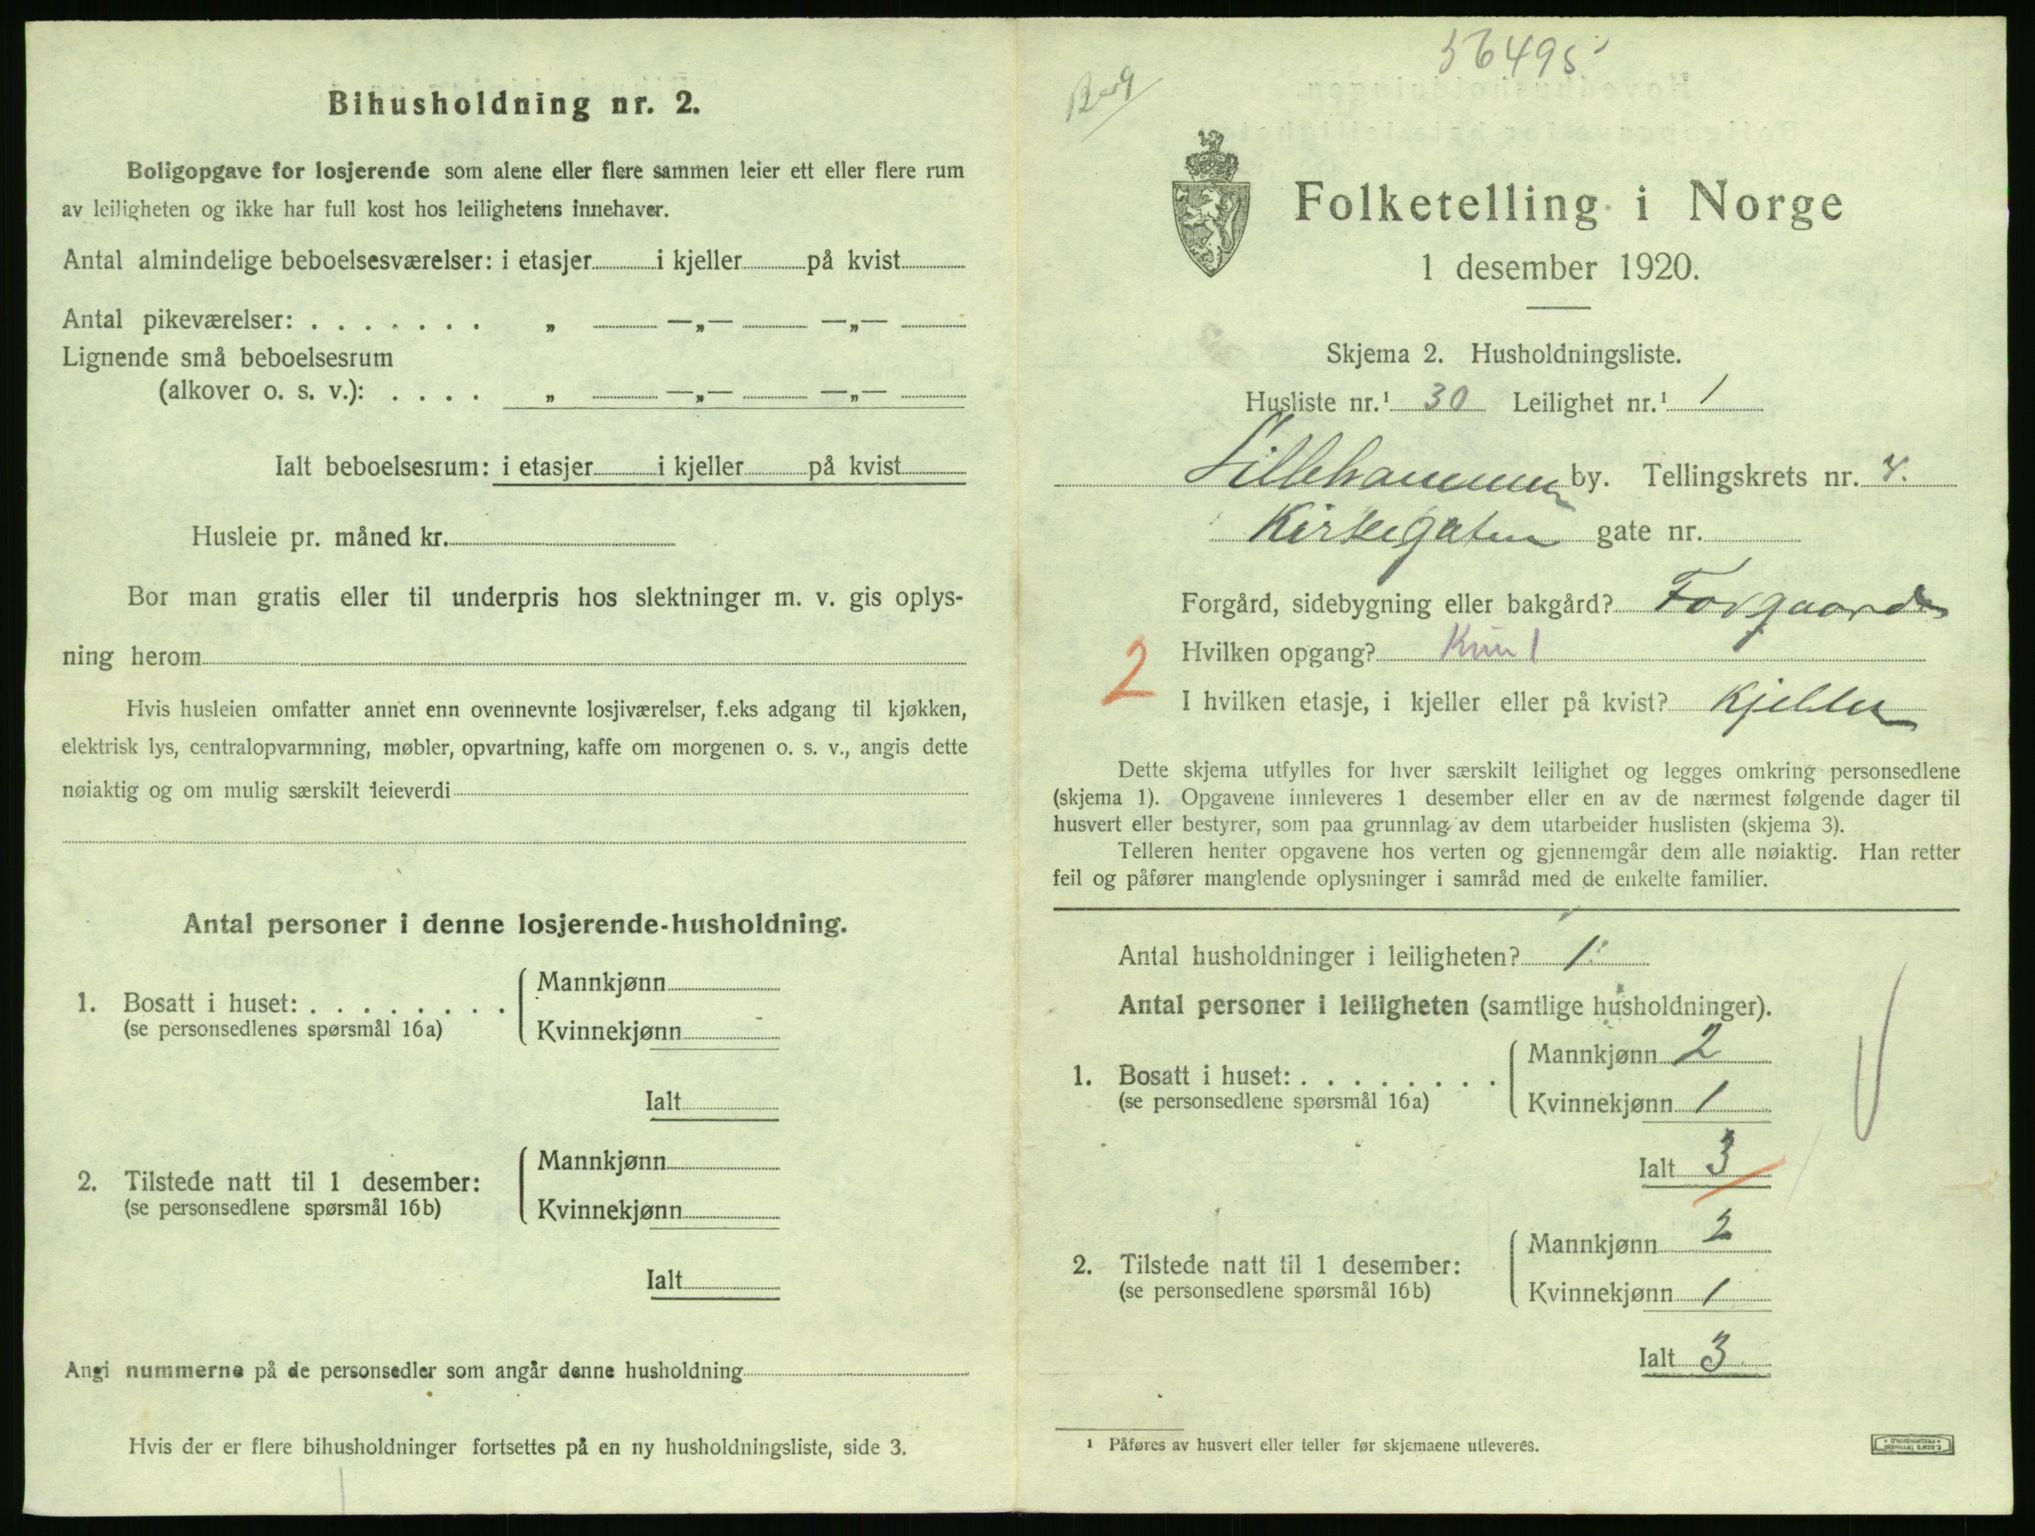 Bihusholdning nr. 2.
Boligopgave for losjerende som alene eller flere sammen leier ett eller flere rum
av leiligheten og ikke har full kost hos leilighetens innehaver.
Antal almindelige beboelsesværelser: i etasjer i kjeller på kvist
Antal pikeværelser: . . . . . . . „ —„— —„—
Lignende små beboelsesrum
(alkover o. s. v.): . . . . „ —„— —„—
Ialt beboelsesrum: i etasjer i kjeller på kvist
Husleie pr. måned kr.
Bor man gratis eller til underpris hos slektninger m. v. gis oplys-
ning herom
Hvis husleien omfatter annet enn ovennevnte losjiværelser, f.eks adgang til kjøkken,
elektrisk lys, centralopvarmning, møbler, opvartning, kaffe om morgenen o. s. v., angis dette
nøiaktig og om mulig særskilt leieverdi
Antal personer i denne losjerende-husholdning.
1. Bosatt i huset: . . . . . . . . Mannkjønn
(se personsedlenes spørsmål 16a) Kvinnekjønn
Ialt
2. Tilstede natt til 1 desember: Mannkjønn
(se personsedlene spørsmål 16b) Kvinnekjønn
Ialt
Angi nummerne på de personsedler som angår denne husholdning
Hvis der er flere bihusholdninger fortsettes på en ny husholdningsliste, side 3.
56495
Berg
Folketelling i Norge
1 desember 1920.
Skjema 2. Husholdningsliste.
Husliste nr.¹ 30 Leilighet nr.¹ 1
Lillehammer by. Tellingskrets nr. 4.
Kirkegaten gate nr.
Forgård, sidebygning eller bakgård? Forgaard
Hvilken opgang? Kun 1
2
I hvilken etasje, i kjeller eller på kvist? Kjeller
Dette skjema utfylles for hver særskilt leilighet og legges omkring personsedlene
(skjema 1). Opgavene innleveres 1 desember eller en av de nærmest følgende dager til
husvert eller bestyrer, som paa grunnlag av dem utarbeider huslisten (skjema 3).
Telleren henter opgavene hos verten og gjennemgår dem alle nøiaktig. Han retter
feil og påfører manglende oplysninger i samråd med de enkelte familier.
Antal husholdninger i leiligheten? 1
Antal personer i leiligheten (samtlige husholdninger).
1. Bosatt i huset: . . . . . . . . Mannkjønn 2
(se personsedlene spørsmål 16a) Kvinnekjønn 1
Ialt 3
2. Tilstede natt til 1 desember: Mannkjønn 2
(se personsedlene spørsmål 16b) Kvinnekjønn 1
Ialt 3
¹ Påføres av husvert eller teller før skjemaene utleveres.